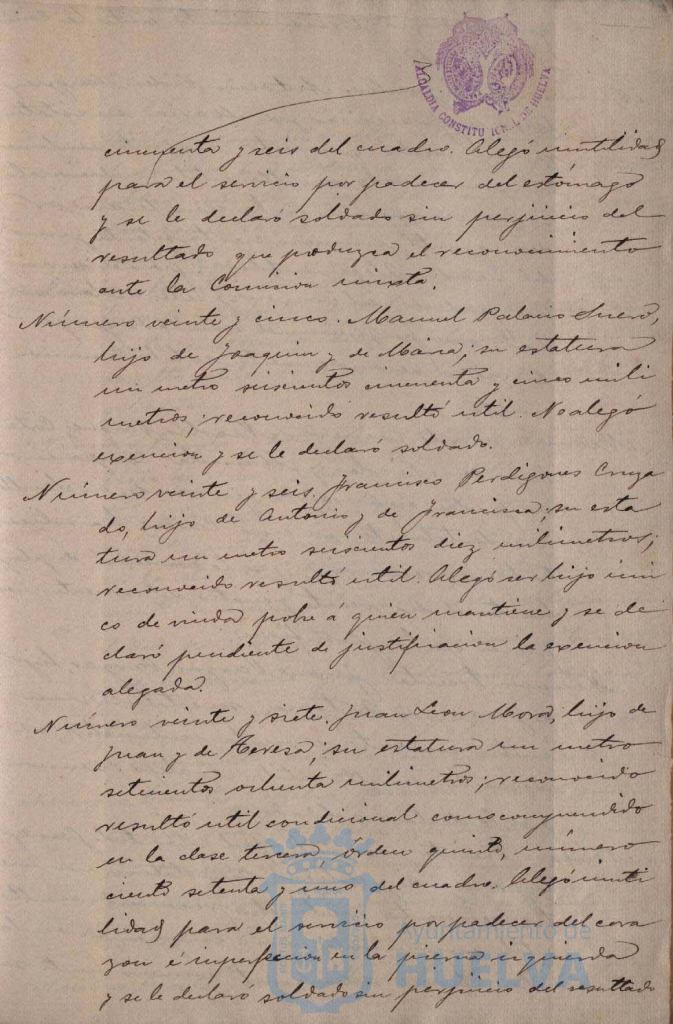 ALCALDIA CONSTITUCIONAL DE HUELVA
cincuenta y seis del cuadro. Alegó inutilidad
para el servicio por padecer del estómago
y se le declaró soldado sin perjuicio del
resultado que produzca el reconocimiento
ante la Comision mixta.
Número veinte y cinco. Manuel Palacio Suero,
hijo de Joaquin y de Maria; su estatura
un metro seiscientos cincuenta y cinco mili
metros; reconocido resultó util. No alegó
exencion y se le declaró soldado.
Número veinte y seis. Francisco Perdigones Cruza
do, hijo de Antonio y de Francisca; su esta
tura un metro seiscientos diez milimetros;
reconocido resultó util. Alegó ser hijo úni
co de viuda pobre á quien mantiene y se de
claró pendiente de justificacion la exencion
alegada.
Número veinte y siete. Juan Leon Mora, hijo de
Juan y de Teresa; su estatura un metro
setecientos ochenta milimetros; reconocido
resultó util condicional como comprendido
en la clase tercera, órden quinto, número
ciento setenta y uno del cuadro. Alegó inuti
lidad para el servicio por padecer del cora
zon é imperfeccion en la pierna izquierda
y se le declaró soldado sin perjuicio del resultado
Ayuntamiento de
HUELVA